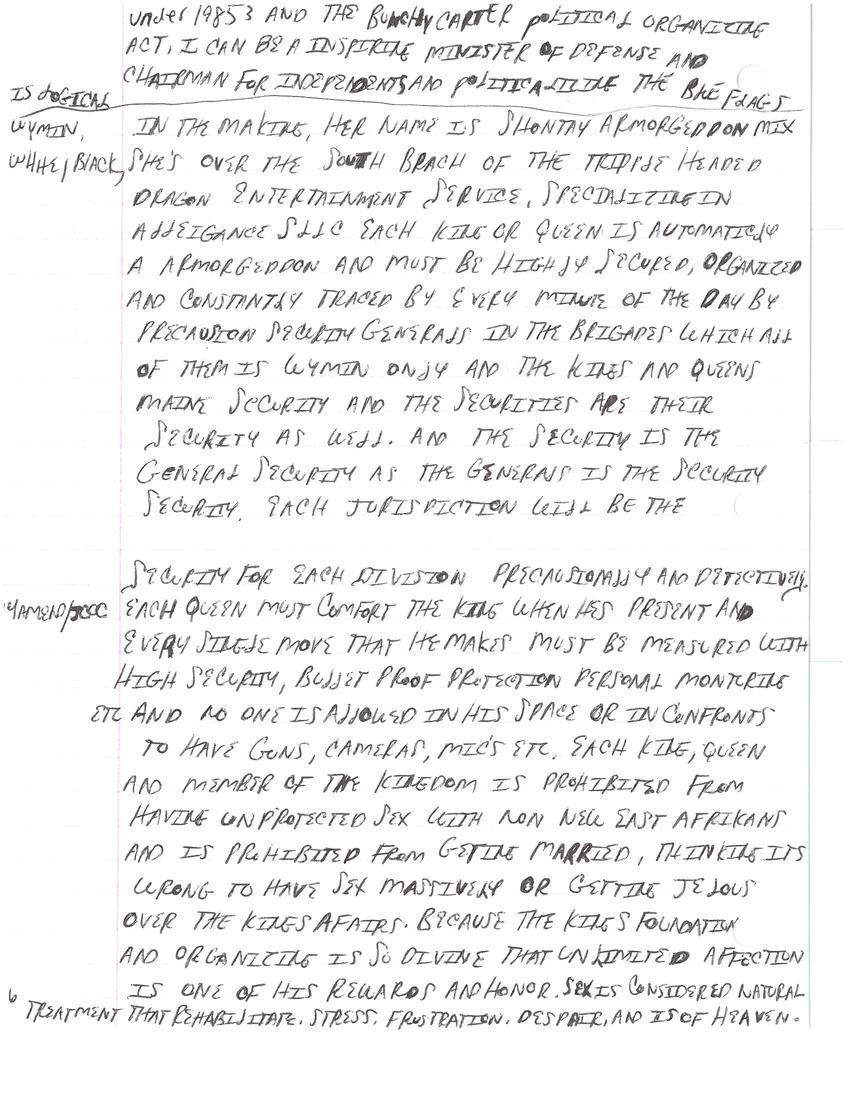 under 1985 3 AND THE BUNCHY CARTER POLITICAL ORGANIZING
ACT, I CAN BE A INSPIRING MINISTER OF DEFENSE AND
CHAIRMAN FOR INDEPENDENTS AND POLITICALIZING THE BLUE FLAGS
IS LOGICAL
WYMIN, IN THE MAKING, HER NAME IS SHONTAY ARMORGEDDON MIX
WHITE/BLACK, SHE'S OVER THE SOUTH BRACH OF THE TRIPPLE HEADED
DRAGON ENTERTAINMENT SERVICE, SPECIALIZING IN
ALLEIGANCE SLLC EACH KING OR QUEEN IS AUTOMATICLY
A ARMORGEDDON AND MUST BE HIGHLY SECURED, ORGANIZED
AND CONSTANTLY TRACED BY EVERY MINUTE OF THE DAY BY
PRECAUSION SECURITY GENERALS IN THE BRIGADES WHICH ALL
OF THEM IS WYMIN ONLY AND THE KINGS AND QUEENS
MAINE SECURITY AND THE SECURITIES ARE THEIR
SECURITY AS WELL. AND THE SECURITY IS THE
GENERAL SECURITY AS THE GENERALS IS THE SECURITY
SECURITY. EACH JURISDICTION WILL BE THE
SECURITY FOR EACH DIVISION PRECAUSIONALLY AND DETECTIVELY.
4AMEND/ EACH QUEEN MUST COMFORT THE KING WHEN HES PRESENT AND
EVERY SINGLE MOVE THAT HE MAKES MUST BE MEASURED WITH
HIGH SECURITY, BULLET PROOF PROTECTION PERSONAL MONTURING
ETC AND NO ONE IS ALLOWED IN HIS SPACE OR IN CONFRONTS
TO HAVE GUNS, CAMERAS, MIC'S ETC. EACH KING, QUEEN
AND MEMBER OF THE KINGDOM IS PROHIBITED FROM
HAVING UNPROTECTED SEX WITH NON NEW EAST AFRIKANS
AND IS PROHIBITED FROM GETING MARRIED, THINKING ITS
WRONG TO HAVE SEX MASSIVELY OR GETTING JELOUS
OVER THE KINGS AFAIRS. BECAUSE THE KINGS FOUNDATION
AND ORGANIZING IS SO DIVINE THAT UNLIMITED AFFECTION
IS ONE OF HIS REWARDS AND HONOR. SEX IS CONSIDERED NATURAL
6 TREATMENT THAT REHABILITATE. STRESS. FRUSTRATION. DESPAIR, AND IS OF HEAVEN.